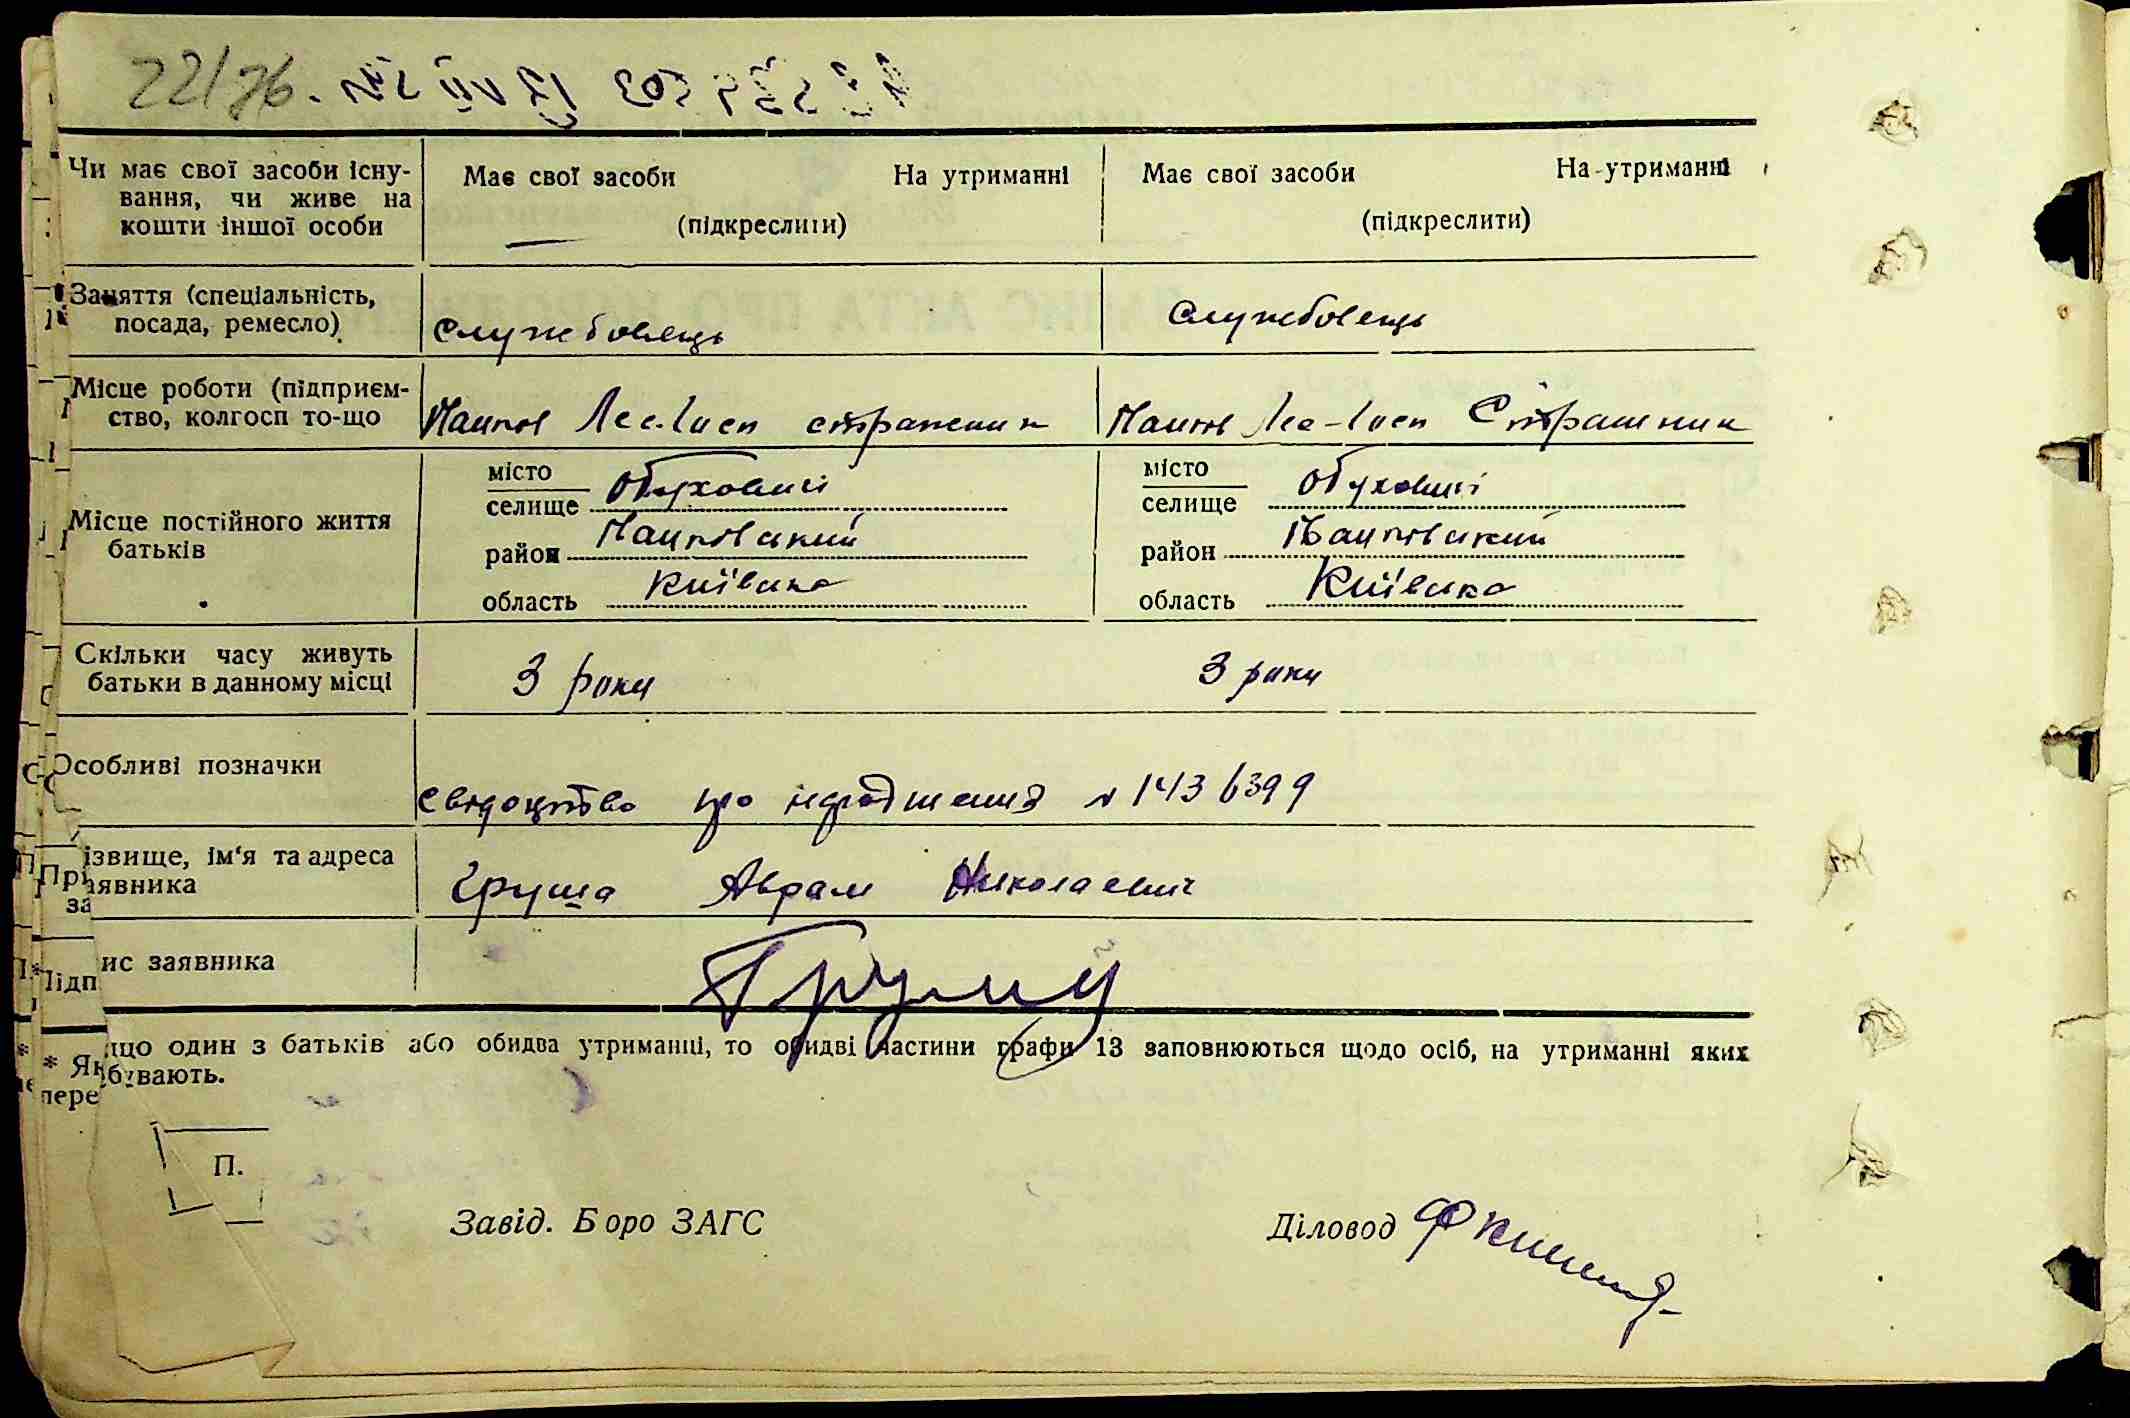 22/76.
Чи має свої засоби існу-
вання, чи живе на
кошти іншої особи
Має свої засоби На утриманні
(підкреслити)
Має свої засоби На утриманні
(підкреслити)
Заняття (спеціальність,
посада, ремесло)
службовець
службовець
Місце роботи (підприєм-
ство, колгосп то-що
Місце постійного життя
батьків
місто
селище Обуховичі
район
область Київська
місто
селище Обуховичі
район
область Київська
Скільки часу живуть
батьки в данному місці
3 роки
3 роки
Особливі позначки
свідоцтво про народження № 1436399
ізвище, ім'я та адреса
аявника
Груша Аврам Николаевич
ис заявника
Прі
за
Підп
що один з батьків або обидва утриманці, то обидві частини графи 13 заповнюються щодо осіб, на утриманні яких
бувають.
* Як
пере
П.
Завід. Бюро ЗАГС
Діловод